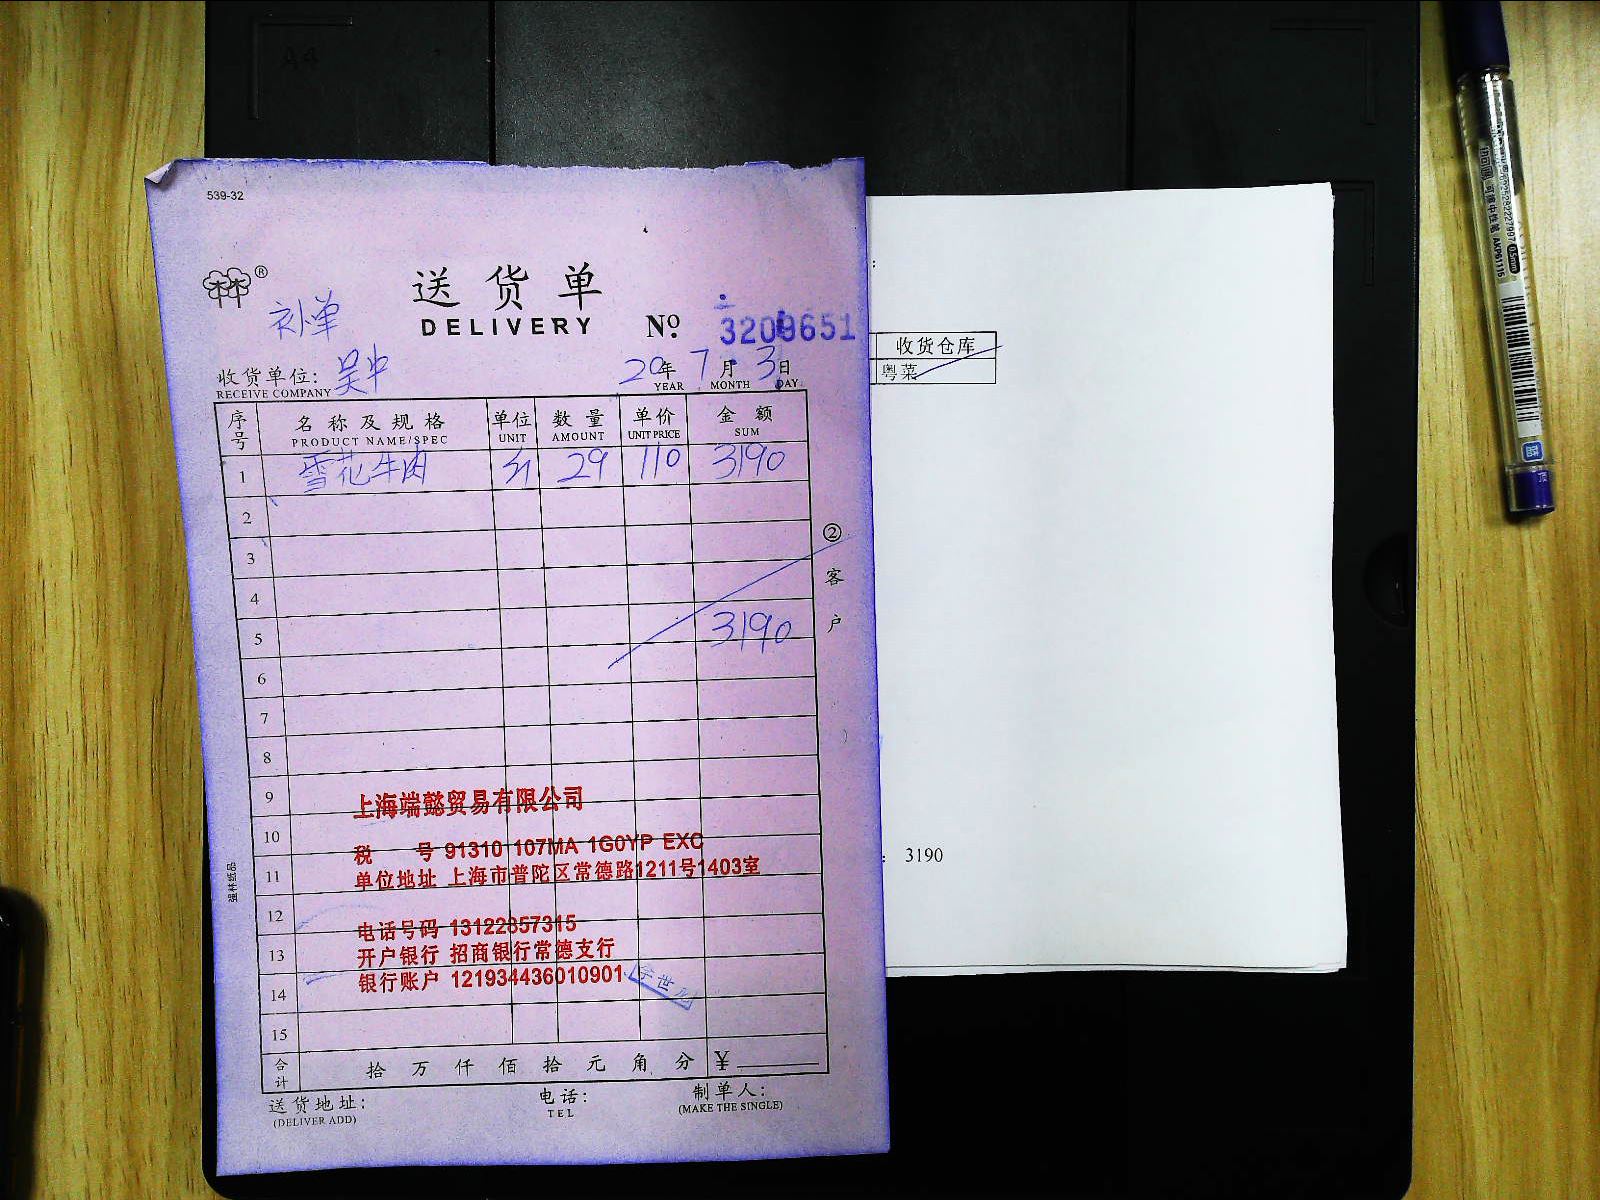 539-32
®
送货单
补单
DELIVERY
Nº 3209651
收货单位: 吴中
RECEIVE COMPANY
20年 7月 3日
YEAR MONTH DAY
序号 名称及规格 单位 数量 单价 金额
PRODUCT NAME/SPEC UNIT AMOUNT UNIT PRICE SUM
1 雪花牛肉 斤 29 110 3190
2
3
4
5 3190
6
7
8
9
10
11
12
13
14
15
②客户
上海端懿贸易有限公司
税 号 91310 107MA 1G0YP EXC
单位地址 上海市普陀区常德路1211号1403室
电话号码 13122857315
开户银行 招商银行常德支行
银行账户 121934436010901
合计 拾 万 仟 佰 拾 元 角 分 ¥
送货地址:
(DELIVER ADD)
电话:
TEL
制单人:
(MAKE THE SINGLE)
强林纸品
:
收货仓库
粤菜
: 3190
A4
可擦中性笔
AKP61116
0.5mm
蓝